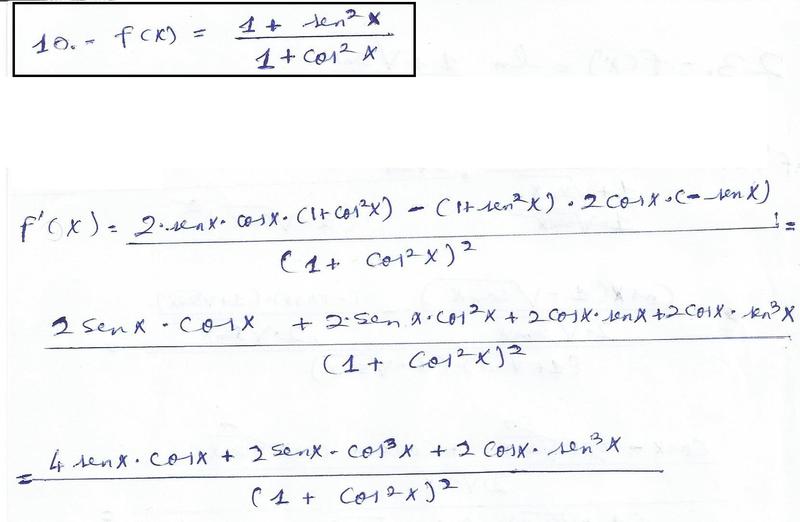 10.- f(x) = (1 + sen²x)/(1 + cos²x)
f'(x) = (2·senx·cosx·(1+cos²x) - (1+sen²x)·2cosx·(-senx))/(1 + cos²x)² =
(2senx·cosx + 2·senx·cos²x + 2cosx·senx + 2cosx·sen³x)/(1 + cos²x)²
= (4senx·cosx + 2senx·cos³x + 2cosx·sen³x)/(1 + cos²x)²